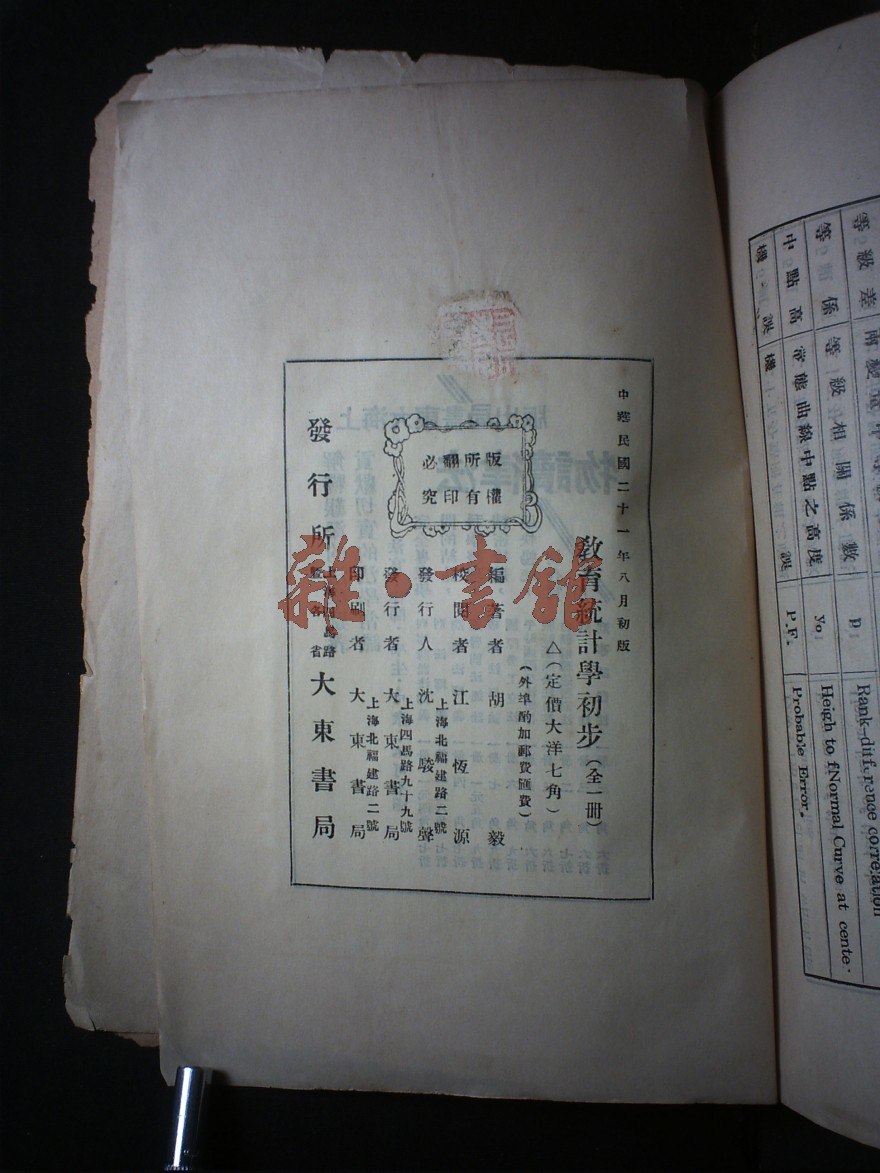 中華民國二十一年八月初版
教育統計學初步（全一册）
△（定價大洋七角）
（外埠酌加郵費匯費）
版權
所有
翻印
必究
編著者 胡毅
校閱者 江恆源
發行人 沈駿聲
上海北福建路二號
發行者 大東書局
上海四馬路九十九號
印刷者 大東書局
上海北福建路二號
發行所 大東書局
雜·書館
等級差
等級相關係數
中點高
常態曲線中點之高度
機誤
Rank-difference correlation
yo
Heigh to fNormal Curve at cente
P.E.
Probable Error.